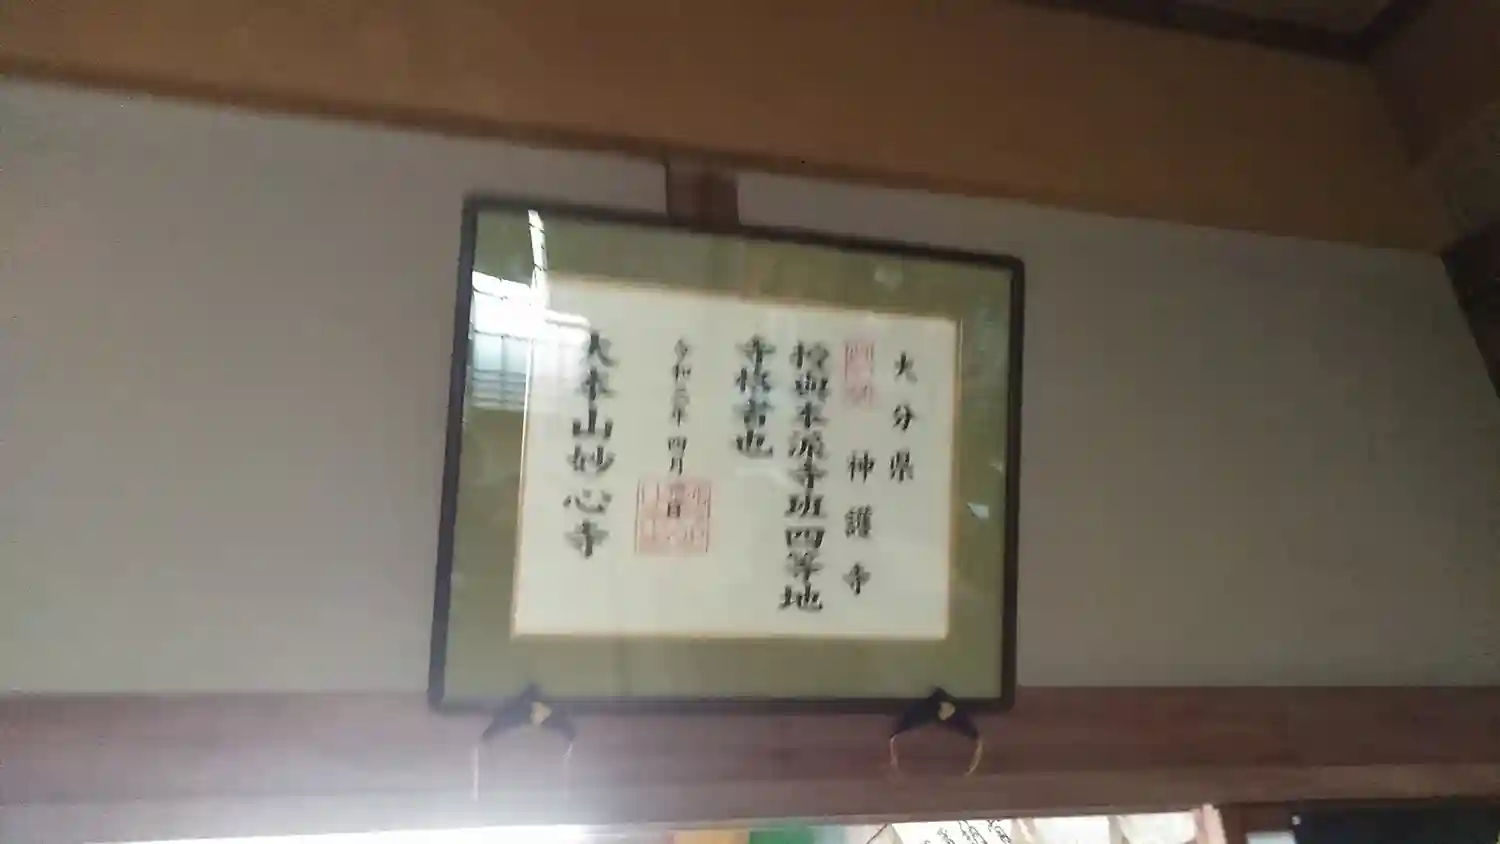 大分県
神護寺
授与本派寺班四等地
寺格者也
令和二年四月
大本山妙心寺